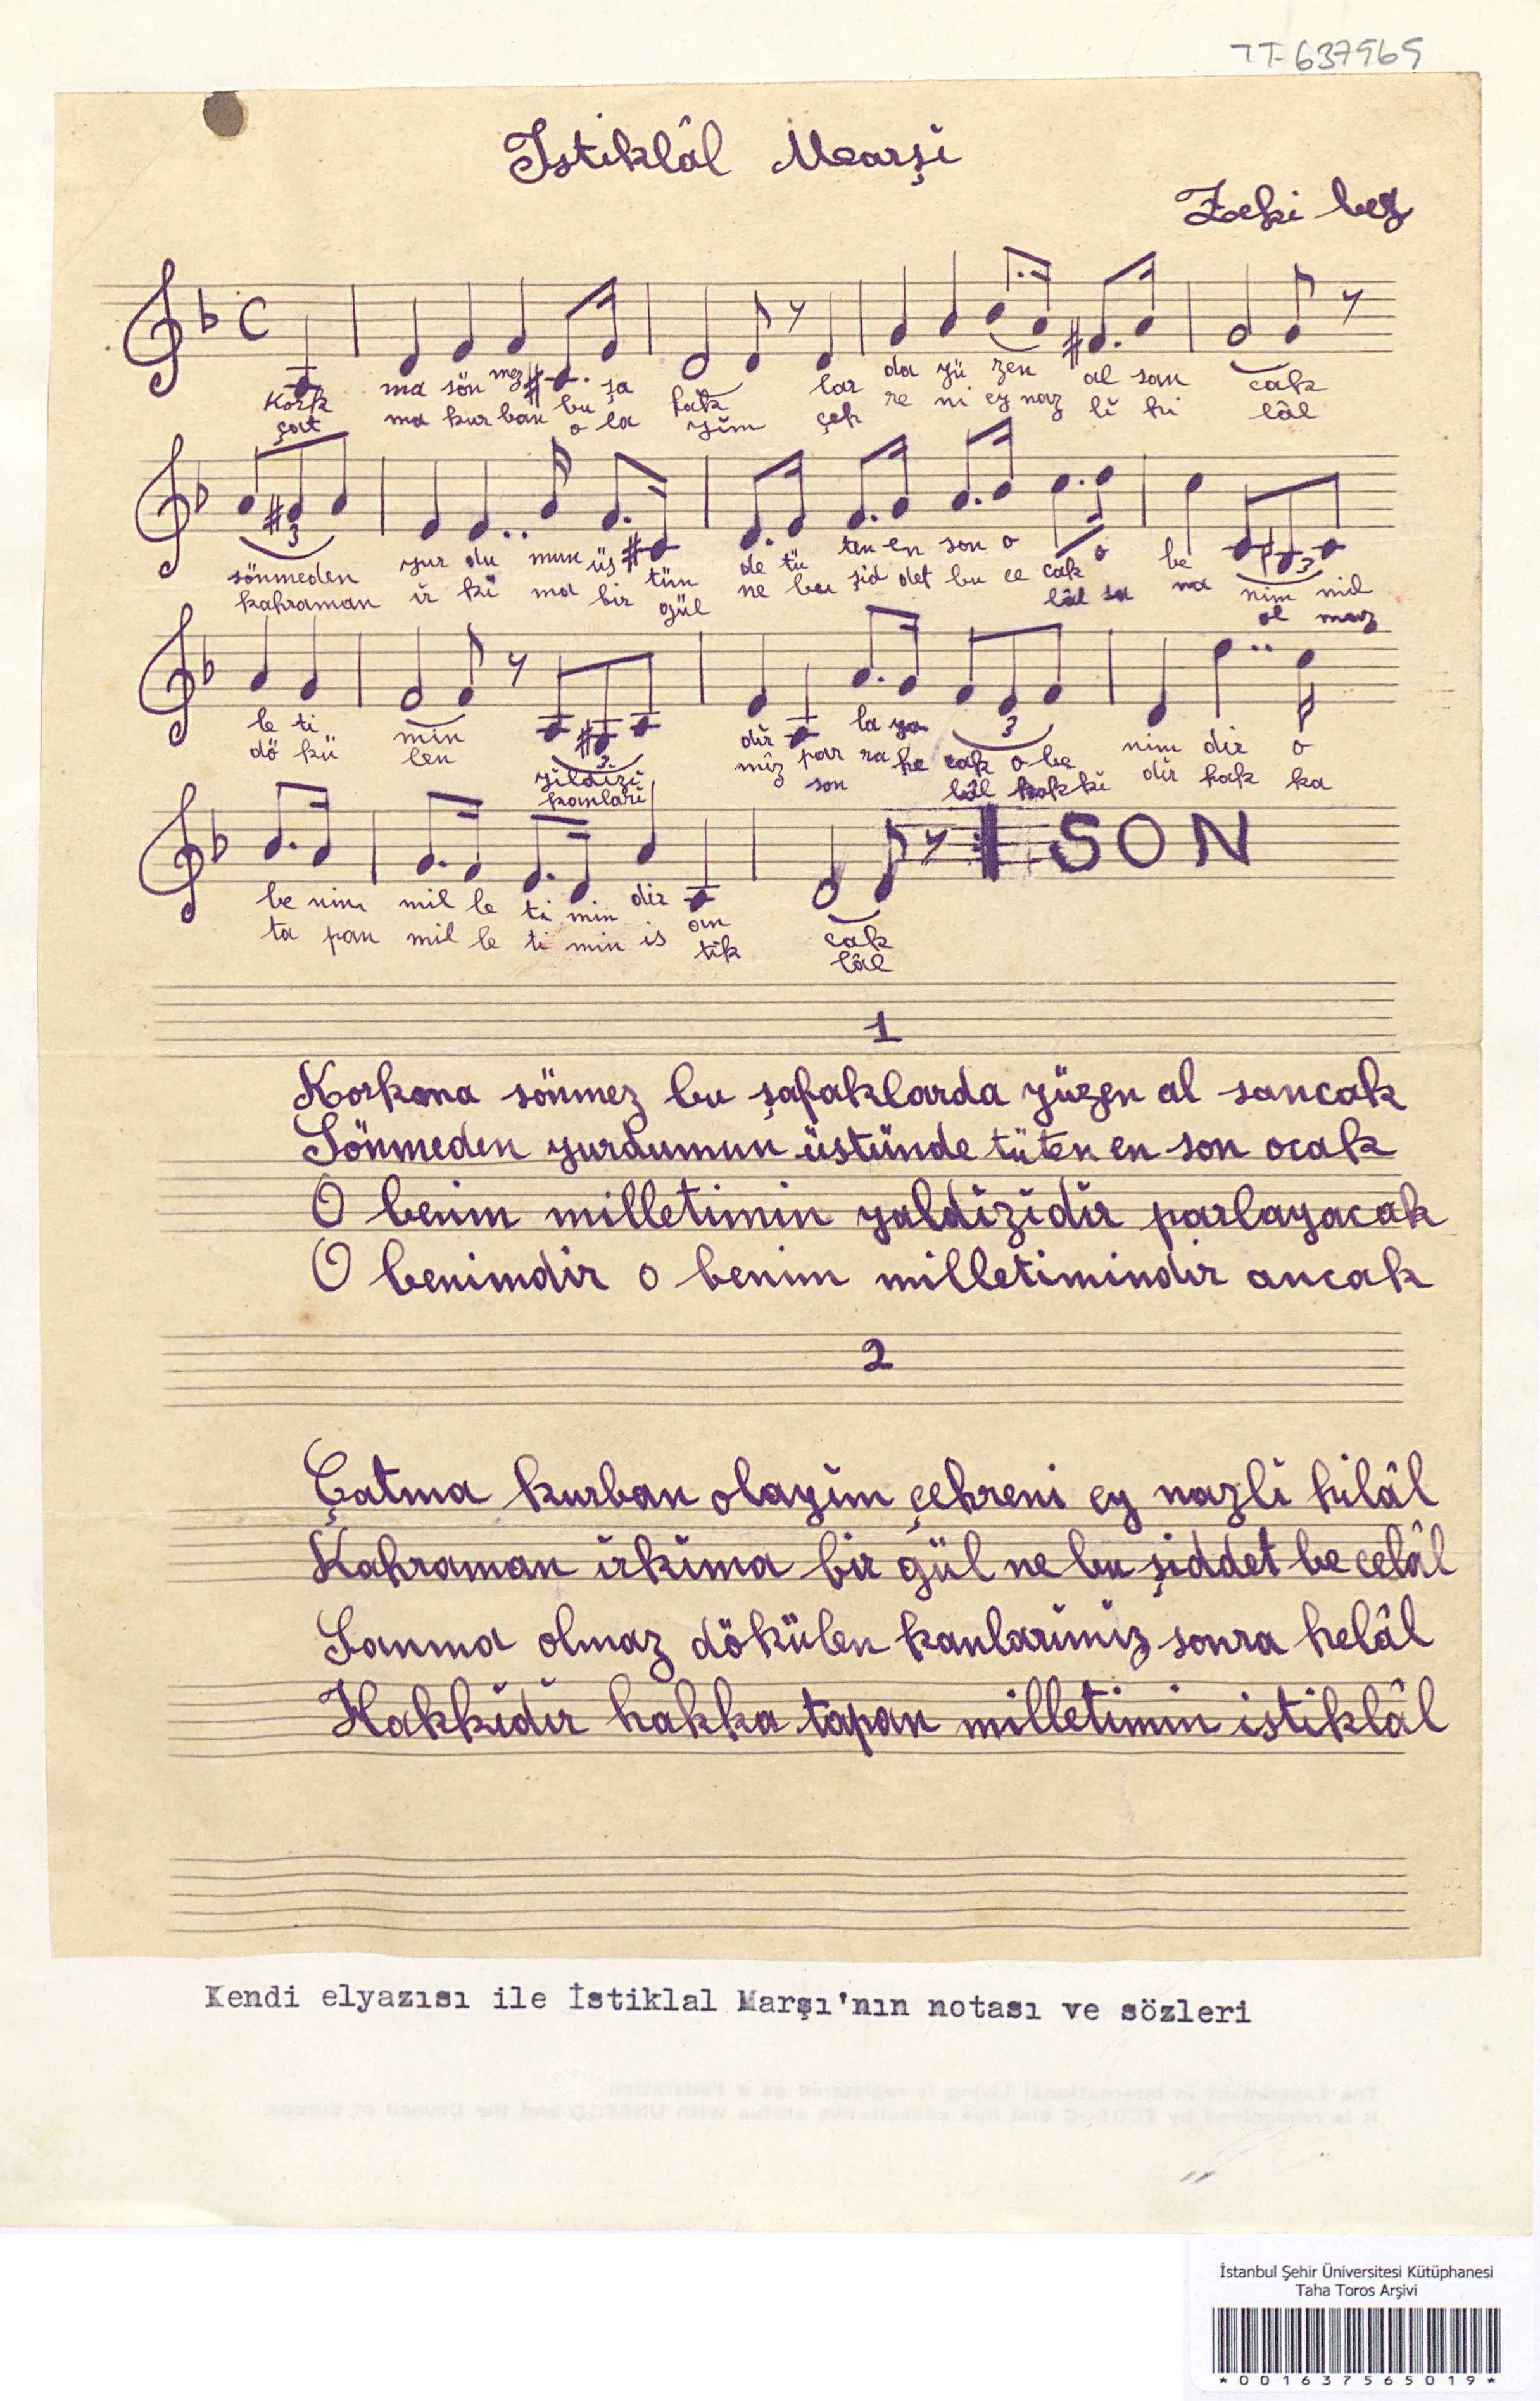 TT-637969
Istiklâl Marşi
Zeki bey
Kork ma sön mez bu şa fak lar da yü zen al san cak
çat ma kur ban o la yim çeh re ni ey naz li hi lâl
sönmeden yur du mun üs tün de tü ten en son o cak o be nim mil
kahraman ir ki ma bir gül ne bu şid det bu ce lâl sa na ol maz
le ti min yildizi dir par la ya cak o be nim dir o
dö kü len kanlari miz son ra he lâl hakki dir hak ka
SON
be nim mil le ti min dir an cak
ta pan mil le ti min is tik lâl
1
Korkma sönmez bu şafaklarda yüzen al sancak
Sönmeden yurdumun üstünde tüten en son ocak
O benim milletimin yaldizidir parlayacak
O benimdir o benim milletimindir ancak
2
Çatma kurban olayim çehreni ey nazli hilâl
Kahraman irkima bir gül ne bu şiddet be celâl
Sanma olmaz dökülen kanlarimiz sonra helâl
Hakkidir hakka tapan milletimin istiklâl
Kendi elyazısı ile İstiklal Marşı'nın notası ve sözleri
İstanbul Şehir Üniversitesi Kütüphanesi
Taha Toros Arşivi
*001637565019*